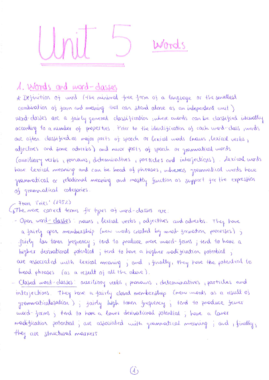 Unit 5 Words
1. Words and word-classes
Definition of word (the minimal free form of a language or the smallest
combination of form and meaning that can stand alone as an independent unit)
Word classes are a fairly general classification where words can be classified
according to a number of properties. Prior to the identification of each word-class words
are often classified as major parts of speech or lexical words (nouns, lexical verbs,
adjectives and some adverbs) and minor parts of speech or grammatical words
(auxiliary verbs, pronouns, determinatives, particles and interjections). Lexical words
have lexical meaning and can be head of phrases, whereas grammatical words have
grammatical or relational meaning and mostly function as support for the expression
of grammatical categories.
The more correct terms for types of word-classes are
- Open word-classes: nouns, lexical verbs, adjectives and adverbs. They have
a fairly open membership (new words created by word-formation processes);
fairly low token frequency; tend to produce more word-forms; tend to have a
higher derivational potential; tend to have a higher modification potential;
are associated with lexical meaning; and, finally, they have the potential to
head phrases (as a result of all the above).
- Closed word-classes: auxiliary verbs, pronouns, determinatives, particles and
interjections. They have a fairly closed membership (new words as a result of
grammaticalisation); fairly high token frequency; tend to produce fewer
word-forms; tend to have a lower derivational potential; have a lower
modification potential; are associated with grammatical meaning; and, finally,
they are structural markers.
1